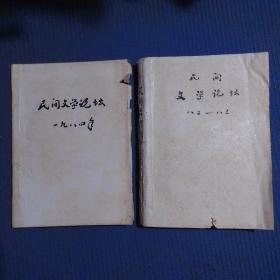 民间文学论坛
一九八四年
民间
文学论坛
八二—八三